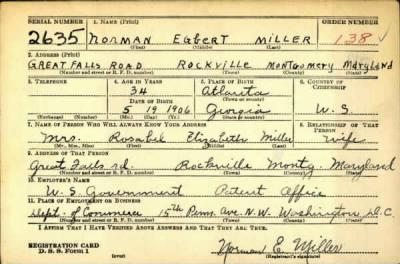 SERIAL NUMBER 1. NAME (Print) ORDER NUMBER
2635 NORMAN EGBERT MILLER 138
(First) (Middle) (Last)
2. ADDRESS (Print)
GREAT FALLS ROAD ROCKVILLE MONTGOMERY MARYLAND
(Number and street or R. F. D. number) (Town) (County) (State)
3. TELEPHONE 4. AGE IN YEARS 5. PLACE OF BIRTH 6. COUNTRY OF CITIZENSHIP
34 Atlanta
DATE OF BIRTH (Town or county)
5 19 1906 Georgia U.S.
(Exchange) (Number) (Mo.) (Day) (Yr.) (State or country)
7. NAME OF PERSON WHO WILL ALWAYS KNOW YOUR ADDRESS 8. RELATIONSHIP OF THAT PERSON
Mrs. Rosabel Elizabeth Miller wife
(Mr., Mrs., Miss) (First) (Middle) (Last)
9. ADDRESS OF THAT PERSON
Great Falls rd. Rockville Montg. Maryland
(Number and street or R. F. D. number) (Town) (County) (State)
10. EMPLOYER'S NAME
U. S. Government Patent Office
11. PLACE OF EMPLOYMENT OR BUSINESS
Dept. of Commerce 15th Penn. Ave. N.W. Washington D.C.
(Number and street or R. F. D. number) (Town) (County) (State)
I AFFIRM THAT I HAVE VERIFIED ABOVE ANSWERS AND THAT THEY ARE TRUE.
REGISTRATION CARD
D. S. S. Form 1 (over) Norman E. Miller
(Registrant's signature)